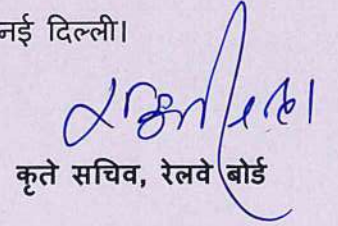 नई दिल्ली।
कृते सचिव, रेलवे बोर्ड